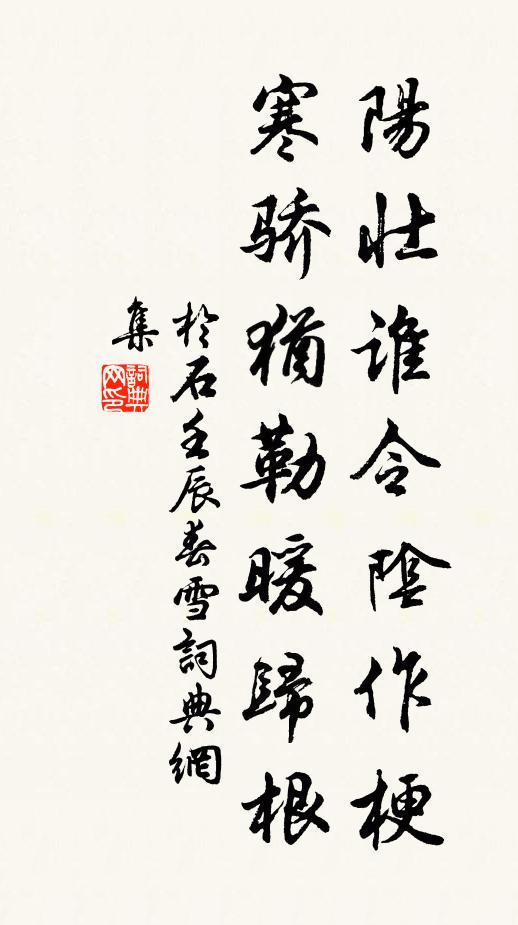 陽壯誰令陰作梗
寒骄猶勒暖歸根
於石壬辰春雪詞典網
集
詞典
网印